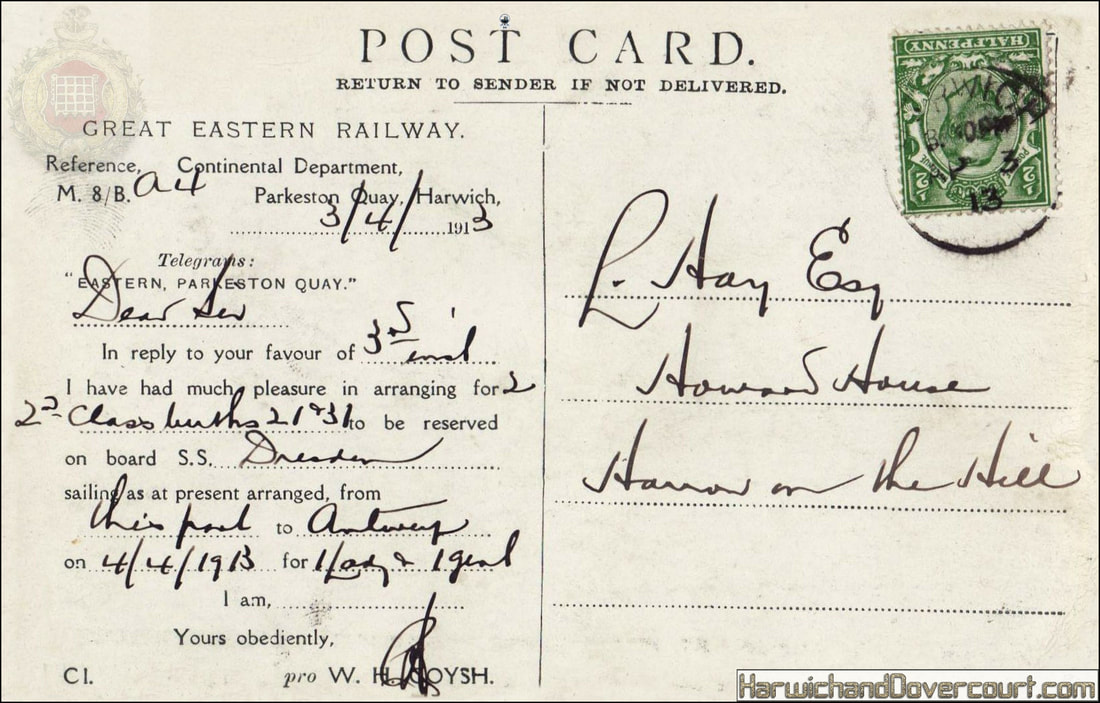 POST CARD.
RETURN TO SENDER IF NOT DELIVERED.
GREAT EASTERN RAILWAY.
Reference, Continental Department,
M. 8/B. a4 Parkeston Quay, Harwich,
3/4/1913
Telegrams:
"EASTERN, PARKESTON QUAY."
Dear Sir
In reply to your favour of 3rd inst
I have had much pleasure in arranging for 2
2nd Class berths 21 & 31 to be reserved
on board S.S. Dresden
sailing as at present arranged, from
this port to Antwerp
on 4/4/1913 for 1 lady & 1 gent
I am,
Yours obediently,
C1. pro W. H. COYSH.
HALFPENNY
13
L. Hay Esq
Howard House
Harrow on the Hill
HarwichandDovercourt.com